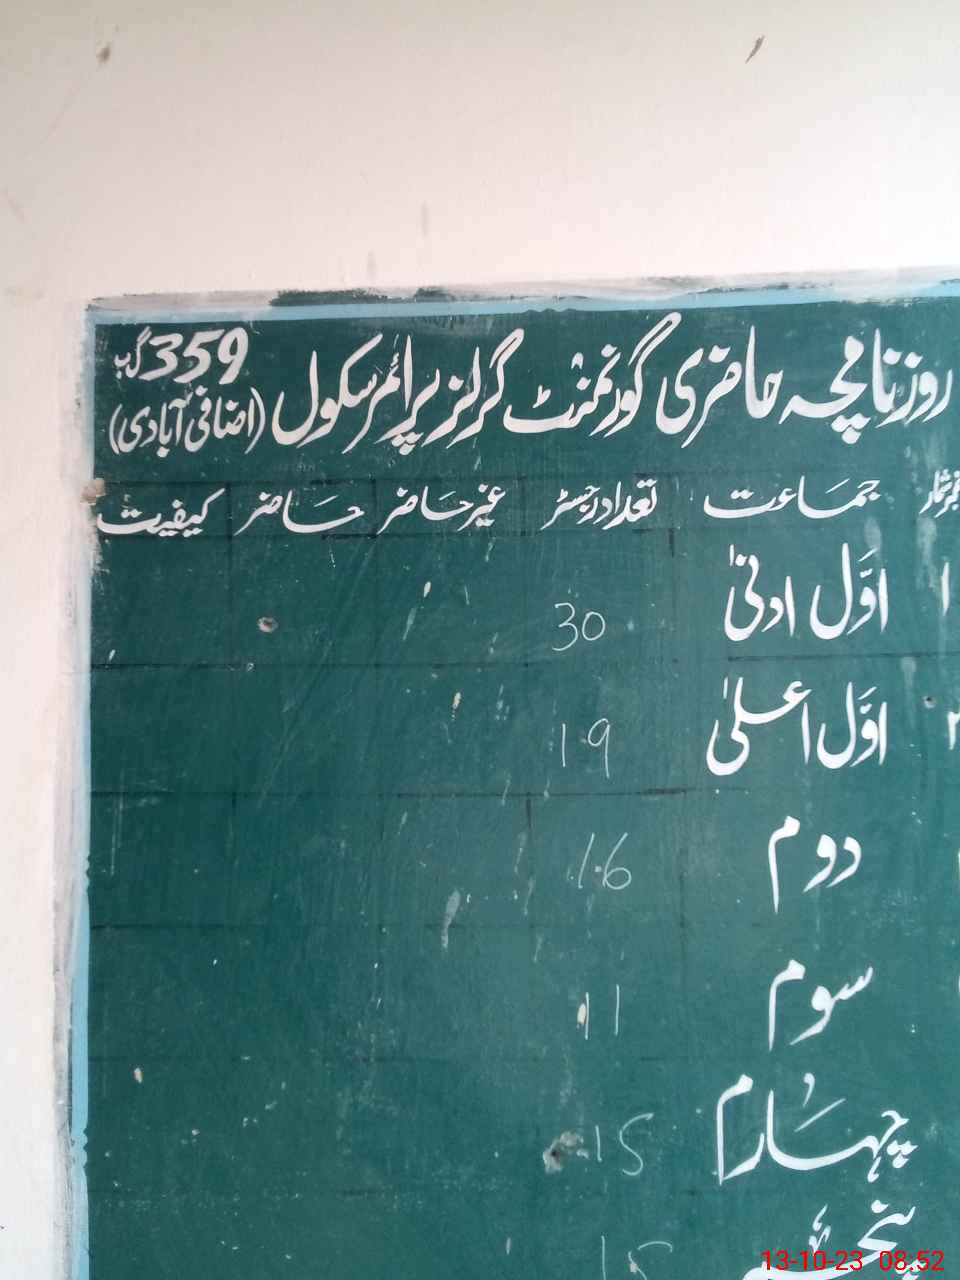 روزنامچہ حاضری گورنمنٹ گرلز پرائمر سکول 359 گ ب
(اضافی آبادی)
نمبر شمار جماعت تعداد رجسٹر غیر حاضر حاضر کیفیت
۱ اوّل ادنیٰ 30
۲ اوّل اعلیٰ 19
دوم 16
سوم 11
چہارم 15
پنجم 15
13-10-23 08:52